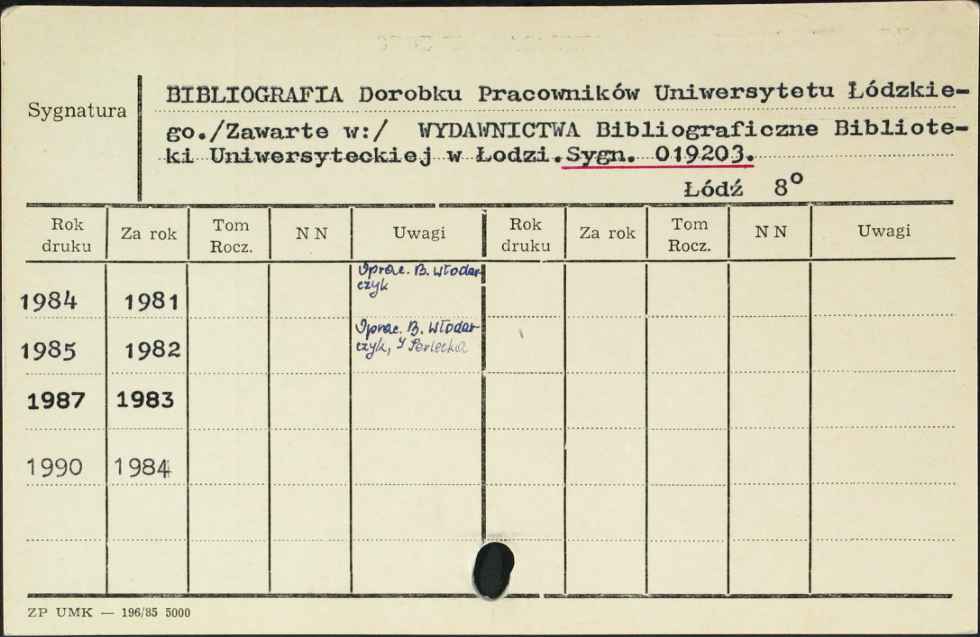 Sygnatura
BIBLIOGRAFIA Dorobku Pracowników Uniwersytetu Łódzkie-
go./Zawarte w:/ WYDAWNICTWA Bibliograficzne Bibliote-
ki Uniwersyteckiej w Łodzi. Sygn. 019203.
Łódź 8°
Rok druku Za rok Tom Rocz. NN Uwagi Rok druku Za rok Tom Rocz. NN Uwagi
Oprac. B. Włodar-
czyk
1984 1981
Oprac. B. Włodar-
czyk,
1985 1982
1987 1983
1990 1984
ZP UMK — 196/85 5000